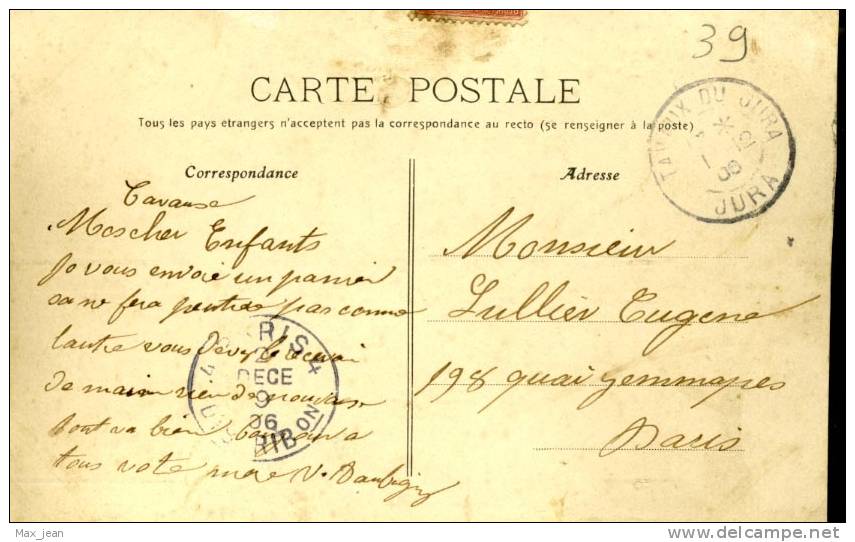 39
CARTE POSTALE
Tous les pays étrangers n'acceptent pas la correspondance au recto (se renseigner à la poste)
TAVAUX DU JURA
06
JURA
Correspondance
Adresse
Mescher Enfants
Je vous envoie un panier
sa ne fera peutres pas comme
lautre vous devez le recevoir
de main rien de nouveau
tout va bien bonjour a
tous vote mere V. Daubigny
PARIS 4
DECE
9
06
DISTRIBON
Monsieur
Lullier Eugene
198 quai gemmapes
Paris
Max_jean
delcampe.net